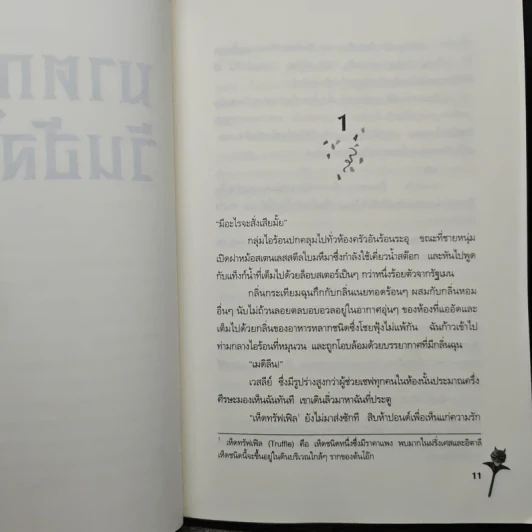 ฆาตก
วันอัส
1
"มีอะไรจะสั่งเสียมั้ย"
กลุ่มไอร้อนปกคลุมไปทั่วห้องครัวอันร้อนระอุ ขณะที่ชายหนุ่ม
เปิดฝาหม้อสเตนเลสสตีลใบมหึมาซึ่งกำลังใช้เคี่ยวน้ำสต๊อก และหันไปพูด
กับแท็งก์น้ำที่เต็มไปด้วยล็อบสเตอร์เป็นๆ กว่าหนึ่งร้อยตัวจากรัฐเมน
กลิ่นกระเทียมฉุนกึกกับกลิ่นเนยทอดร้อนๆ ผสมกับกลิ่นหอม
อื่นๆ นับไม่ถ้วนลอยตลบอบอวลอยู่ในอากาศอุ่นๆ ของห้องที่แออัดและ
เต็มไปด้วยกลิ่นของอาหารหลากชนิดซึ่งโชยฟุ้งไม่แพ้กัน ฉันก้าวเข้าไป
ท่ามกลางไอร้อนที่หมุนวน และถูกโอบล้อมด้วยบรรยากาศที่มีกลิ่นฉุน
"เมดิลีน!"
เวสลีย์ ซึ่งมีรูปร่างสูงกว่าผู้ช่วยเชฟทุกคนในห้องนั้นประมาณครึ่ง
ศีรษะมองเห็นฉันทันที เขาเดินลิ่วมาหาฉันที่ประตู
"เห็ดทรัฟเฟิล1 ยังไม่มาส่งซักที สิบห้าปอนด์เพื่อเห็นแก่ความรัก
1 เห็ดทรัฟเฟิล (Truffle) คือ เห็ดชนิดหนึ่งซึ่งมีราคาแพง พบมากในฝรั่งเศสและอิตาลี
เห็ดชนิดนี้จะขึ้นอยู่ในดินบริเวณใกล้ๆ รากของต้นโอ๊ก
11